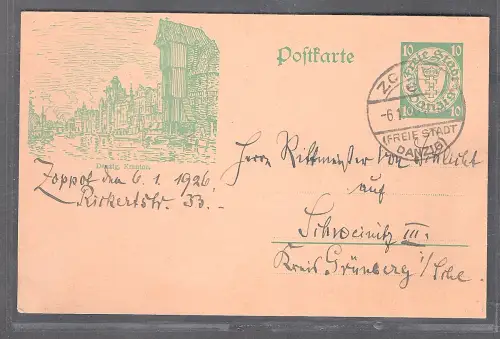 Postkarte
10 10
Freie Stadt
Danzig
10 10
ZO
-6.1.
(FREIE STADT
DANZIG)
Danzig, Krantor
Zoppot den 6. 1. 1926.
Rickertstr. 33.-
Herrn Rittmeister von
auf
Schweinitz III.
Kreis Grünberg i/Schl.